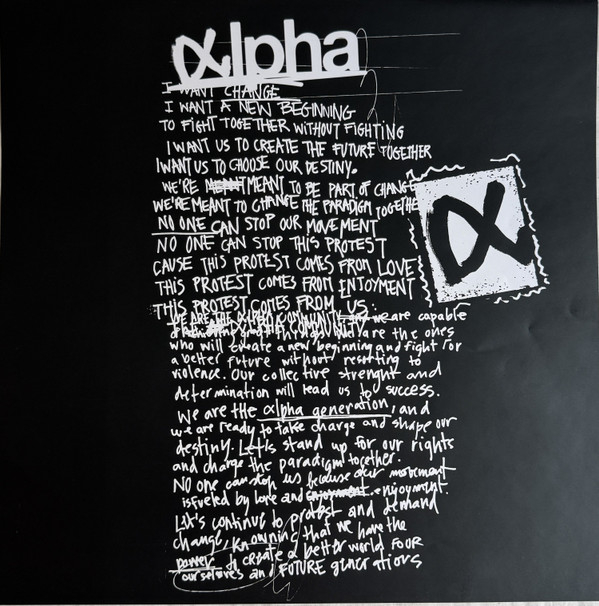 αlpha
I WANT CHANGE
I WANT A NEW BEGINNING
TO FIGHT TOGETHER WITHOUT FIGHTING
I WANT US TO CREATE THE FUTURE TOGETHER
I WANT US TO CHOOSE OUR DESTINY.
WE'RE MEANT TO BE PART OF CHANGE
WE'RE MEANT TO CHANGE THE PARADIGM TOGETHE
NO ONE CAN STOP OUR MOVEMENT
NO ONE CAN STOP THIS PROTEST
CAUSE THIS PROTEST COMES FROM LOVE
THIS PROTEST COMES FROM ENJOYMENT
THIS PROTEST COMES FROM US.
α
WE ARE THE αLPHA COMMUNITY, and we are capable
are the ones
who will create a new beginning and fight for
a better future without resorting to
violence. Our collective strenght and
determination will lead us to success.
We are the αlpha generation, and
we are ready to take charge and shape our
destiny. Let's stand up for our rights
and change the paradigm together.
NO one can stop us because our movement
is fueled by love and enjoyment.
Let's continue to protest and demand
change, knowning that we have the
power to create a better world FOOR
ourselves and FUTURE generations